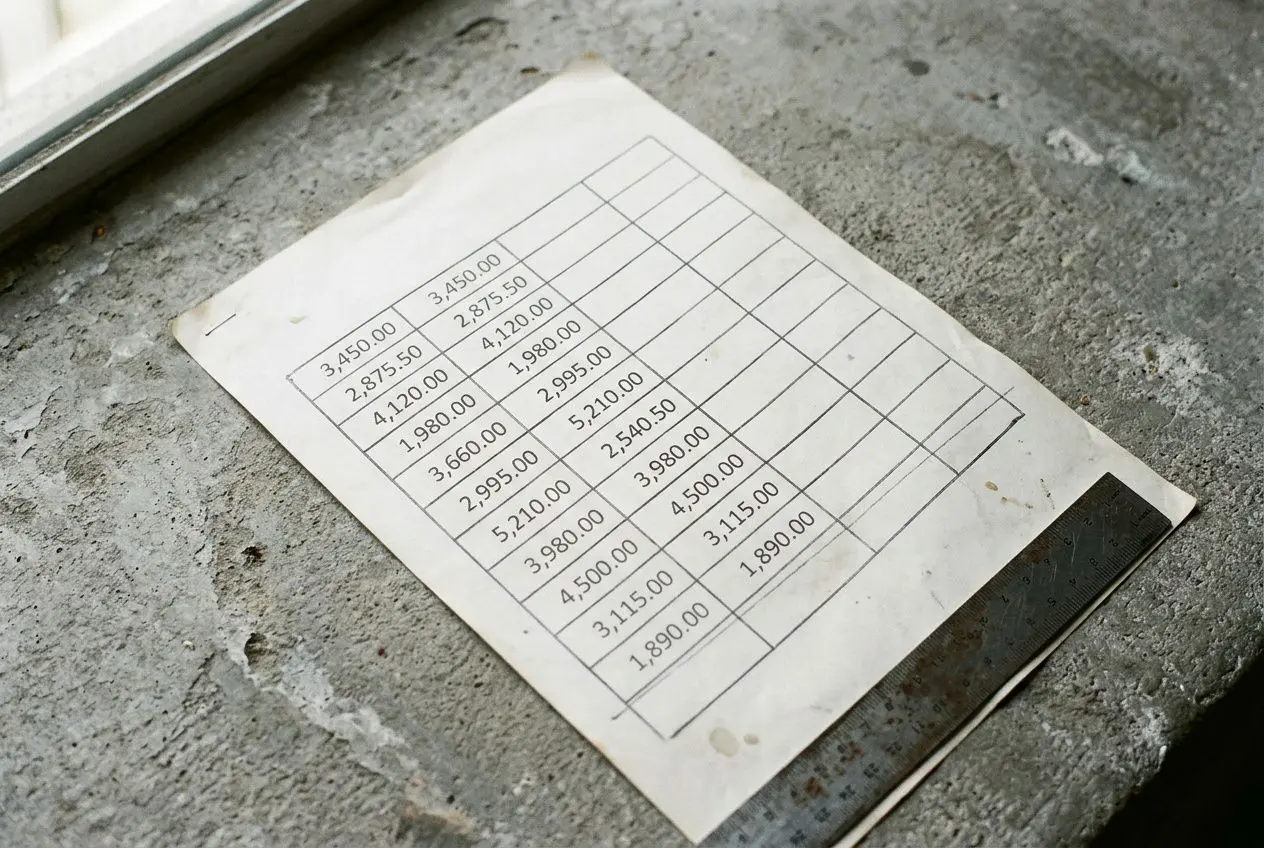 3,450.00 3,450.00
2,875.50 2,875.50
4,120.00 4,120.00
1,980.00 1,980.00
3,660.00 2,995.00
2,995.00 5,210.00
5,210.00 2,540.50
3,980.00 3,980.00
4,500.00 4,500.00
3,115.00 3,115.00
1,890.00 1,890.00